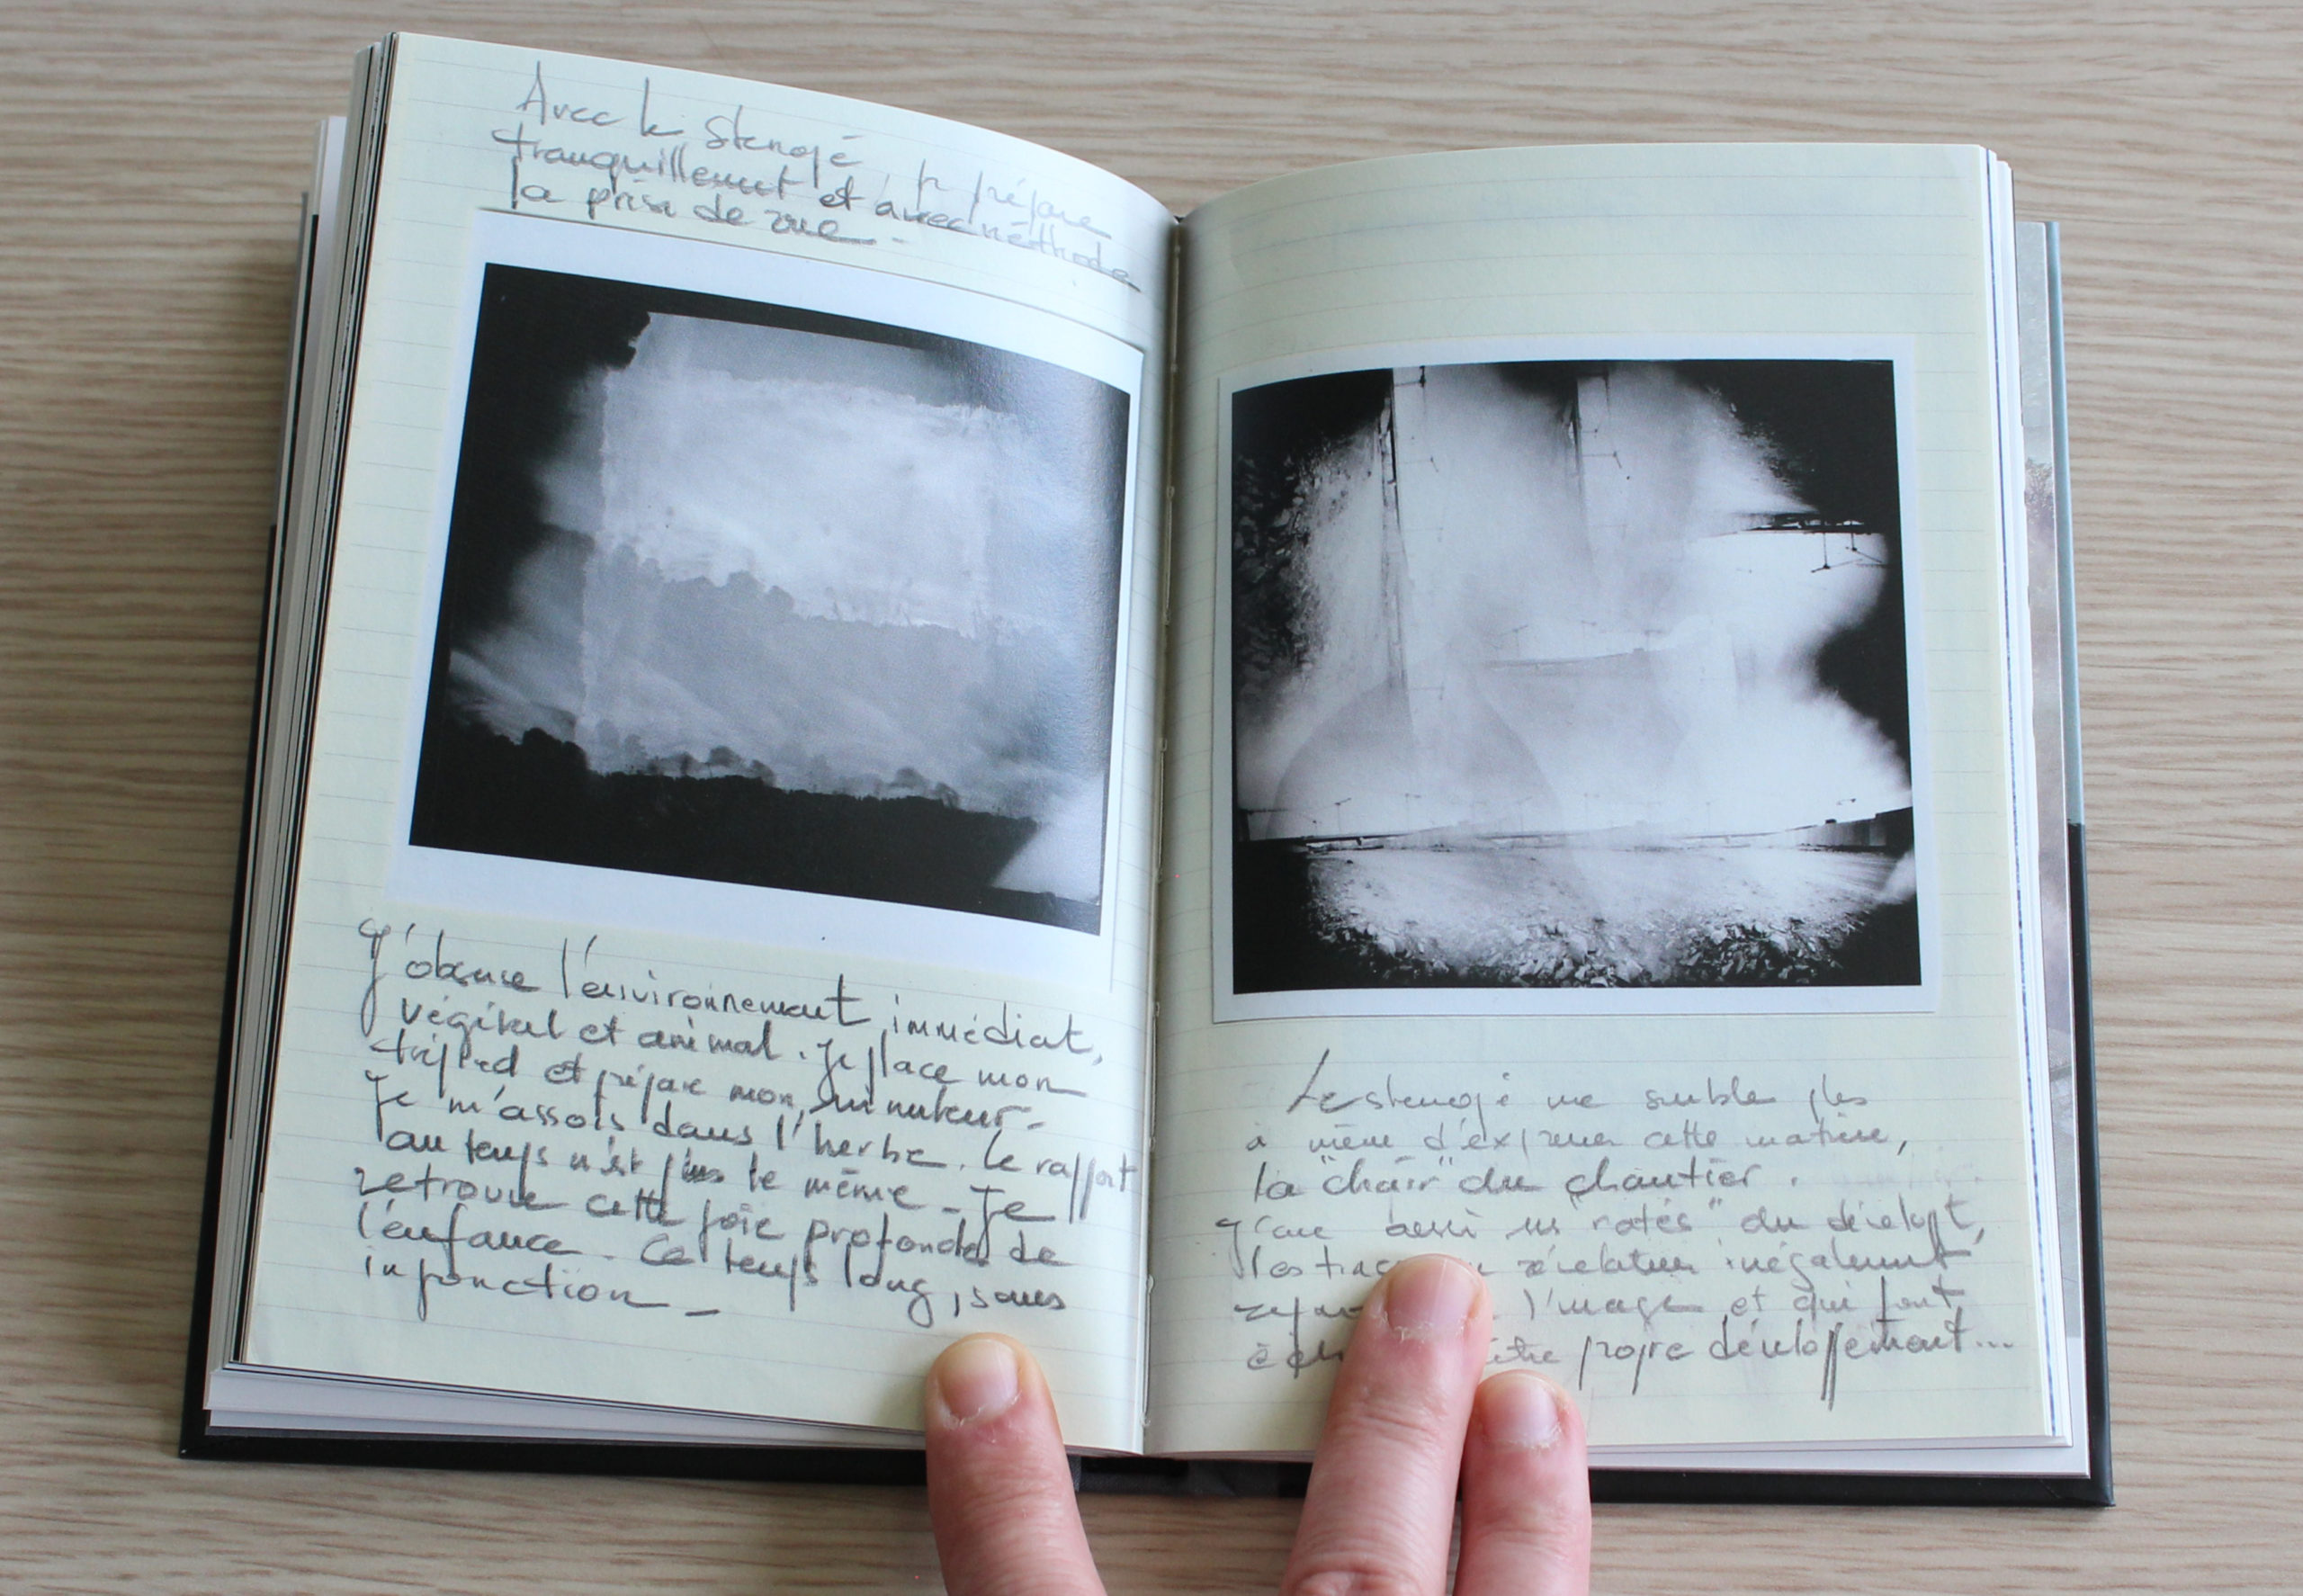 Avec le sténopé, je prépare
tranquillement et avec méthode
la prise de vue -
J'observe l'environnement immédiat,
végétal et animal. Je place mon
trépied et prépare mon minuteur -
Je m'assois dans l'herbe. Le rapport
au temps n'est plus le même - Je
retrouve cette joie profonde de
l'enfance - Ce temps long, sans
injonction -
Le sténopé me semble plus
à même d'exprimer cette matière,
la "chair" du chantier.
J'aime aussi ses "ratés" du dévelopt,
les révélateur inégalement
l'image et qui font
à propre développement...